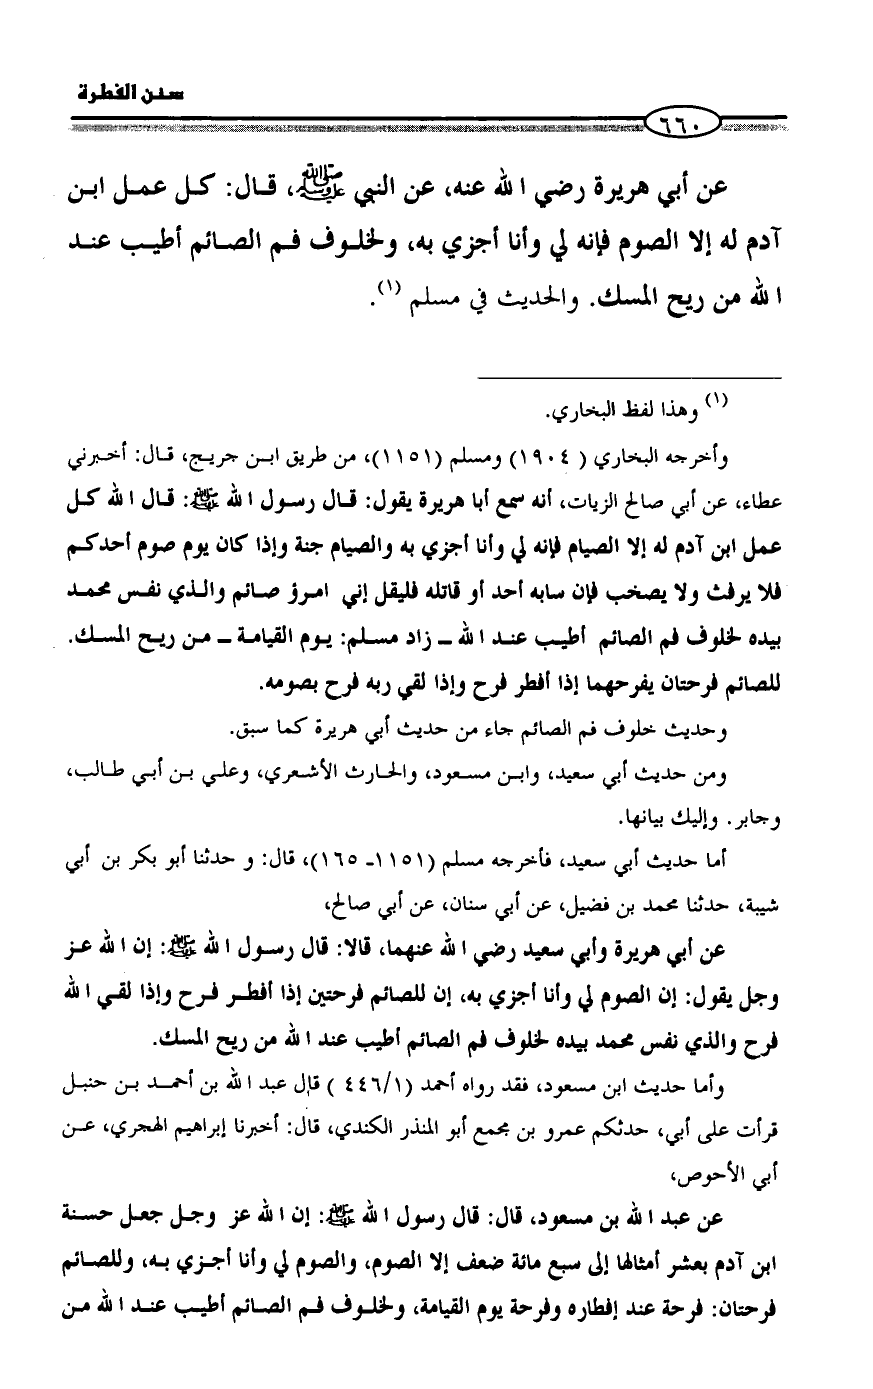 سنن الفطرة
٦٦٠
عن أبي هريرة رضي الله عنه، عن النبي ﷺ، قال: كل عمل ابن
آدم له إلا الصوم فإنه لي وأنا أجزي به، ولخلوف فم الصائم أطيب عند
الله من ريح المسك. والحديث في مسلم (١).
(١) وهذا لفظ البخاري.
وأخرجه البخاري ( ١٩٠٤) ومسلم (١١٥١)، من طريق ابن جريج، قال: أخبرني
عطاء، عن أبي صالح الزيات، أنه سمع أبا هريرة يقول: قال رسول الله ﷺ: قال الله كل
عمل ابن آدم له إلا الصيام فإنه لي وأنا أجزي به والصيام جنة وإذا كان يوم صوم أحدكم
فلا يرفث ولا يصخب فإن سابه أحد أو قاتله فليقل إني امرؤ صائم والذي نفس محمد
بيده لخلوف فم الصائم أطيب عند الله ـ زاد مسلم: يوم القيامة ـ من ريح المسك.
للصائم فرحتان يفرحهما إذا أفطر فرح وإذا لقي ربه فرح بصومه.
وحديث خلوف فم الصائم جاء من حديث أبي هريرة كما سبق.
ومن حديث أبي سعيد، وابن مسعود، والحارث الأشعري، وعلي بن أبي طالب،
وجابر. وإليك بيانها.
أما حديث أبي سعيد، فأخرجه مسلم (١١٥١- ١٦٥)، قال: و حدثنا أبو بكر بن أبي
شيبة، حدثنا محمد بن فضيل، عن أبي سنان، عن أبي صالح،
عن أبي هريرة وأبي سعيد رضي الله عنهما، قالا: قال رسول الله ﷺ: إن الله عز
وجل يقول: إن الصوم لي وأنا أجزي به، إن للصائم فرحتين إذا أفطر فرح وإذا لقي الله
فرح والذي نفس محمد بيده لخلوف فم الصائم أطيب عند الله من ريح المسك.
وأما حديث ابن مسعود، فقد رواه أحمد (٤٤٦/١ ) قال عبد الله بن أحمد بن حنبل
قرأت على أبي، حدثكم عمرو بن مجمع أبو المنذر الكندي، قال: أخبرنا إبراهيم الهجري، عن
أبي الأحوص،
عن عبد الله بن مسعود، قال: قال رسول الله ﷺ: إن الله عز وجل جعل حسنة
ابن آدم بعشر أمثالها إلى سبع مائة ضعف إلا الصوم، والصوم لي وأنا أجزي به، وللصائم
فرحتان: فرحة عند إفطاره وفرحة يوم القيامة، ولخلوف فم الصائم أطيب عند الله من